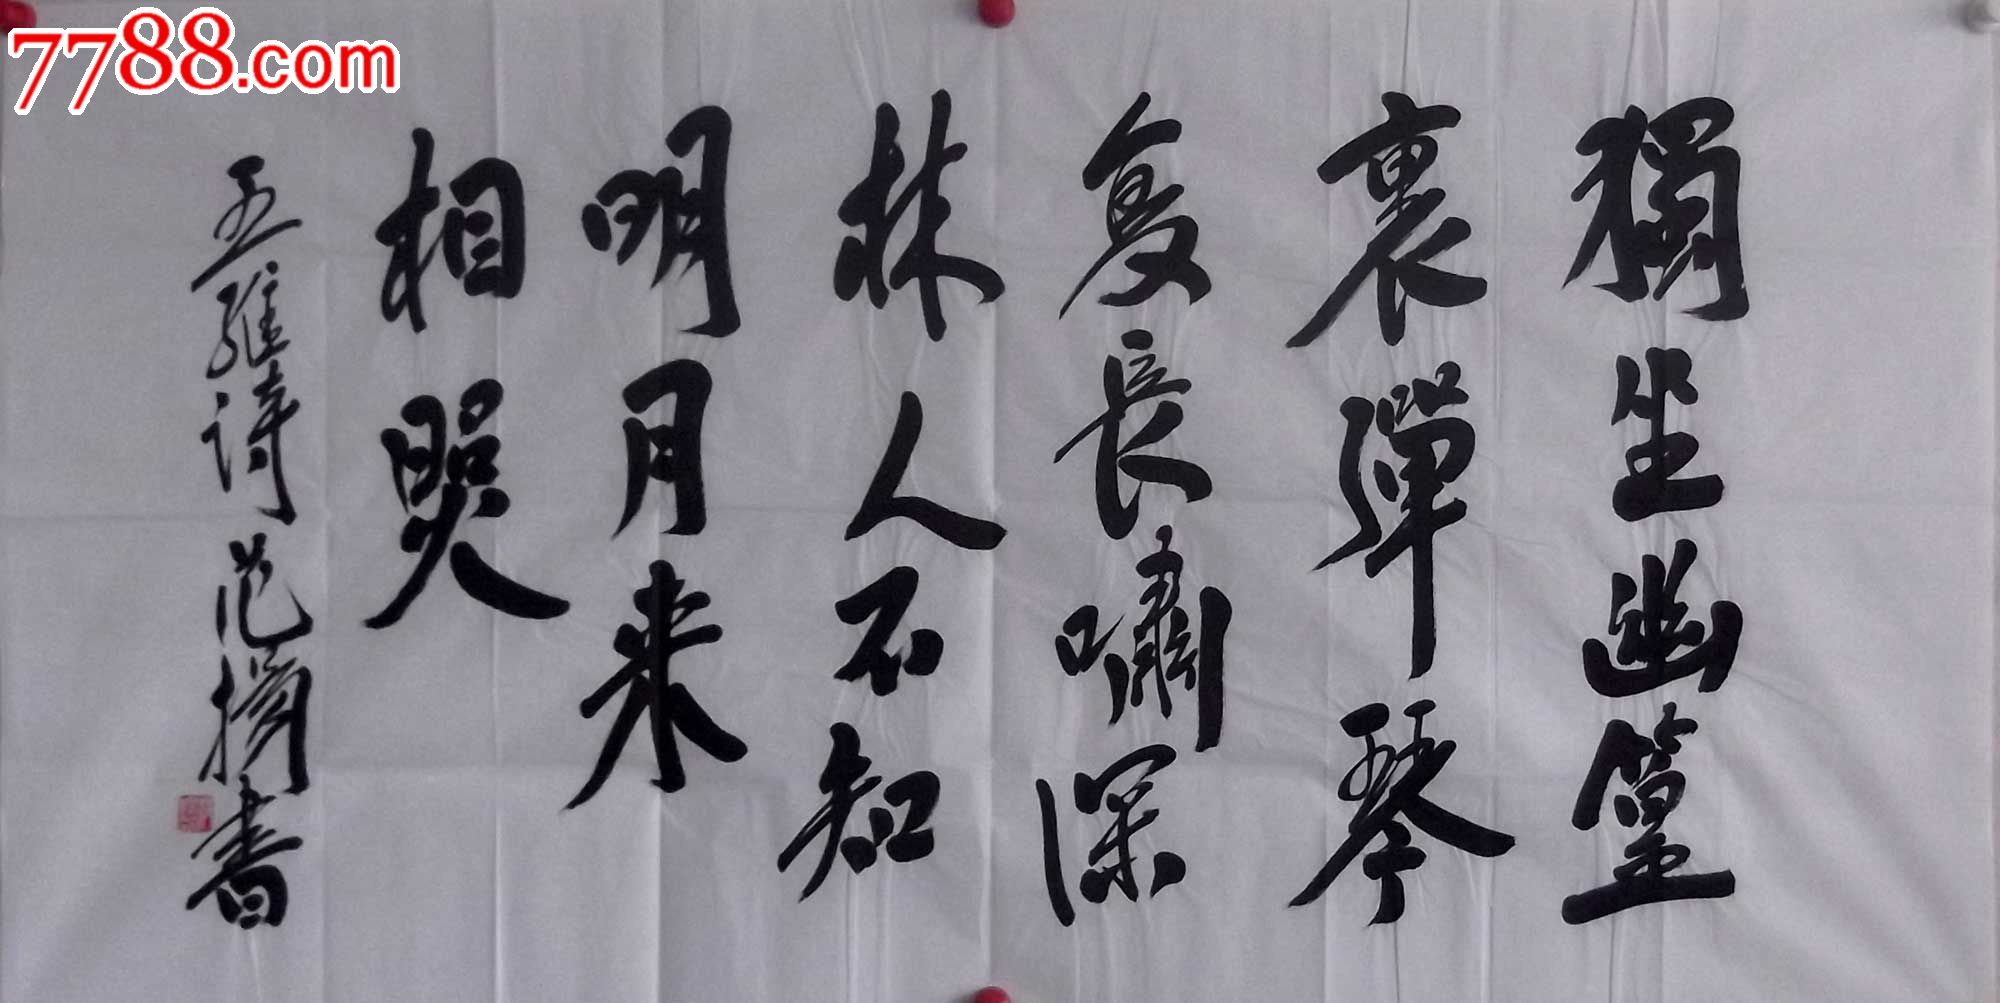 7788.com
獨坐幽篁
裏彈琴
复長嘯深
林人不知
明月来
相照
王維诗范揚書